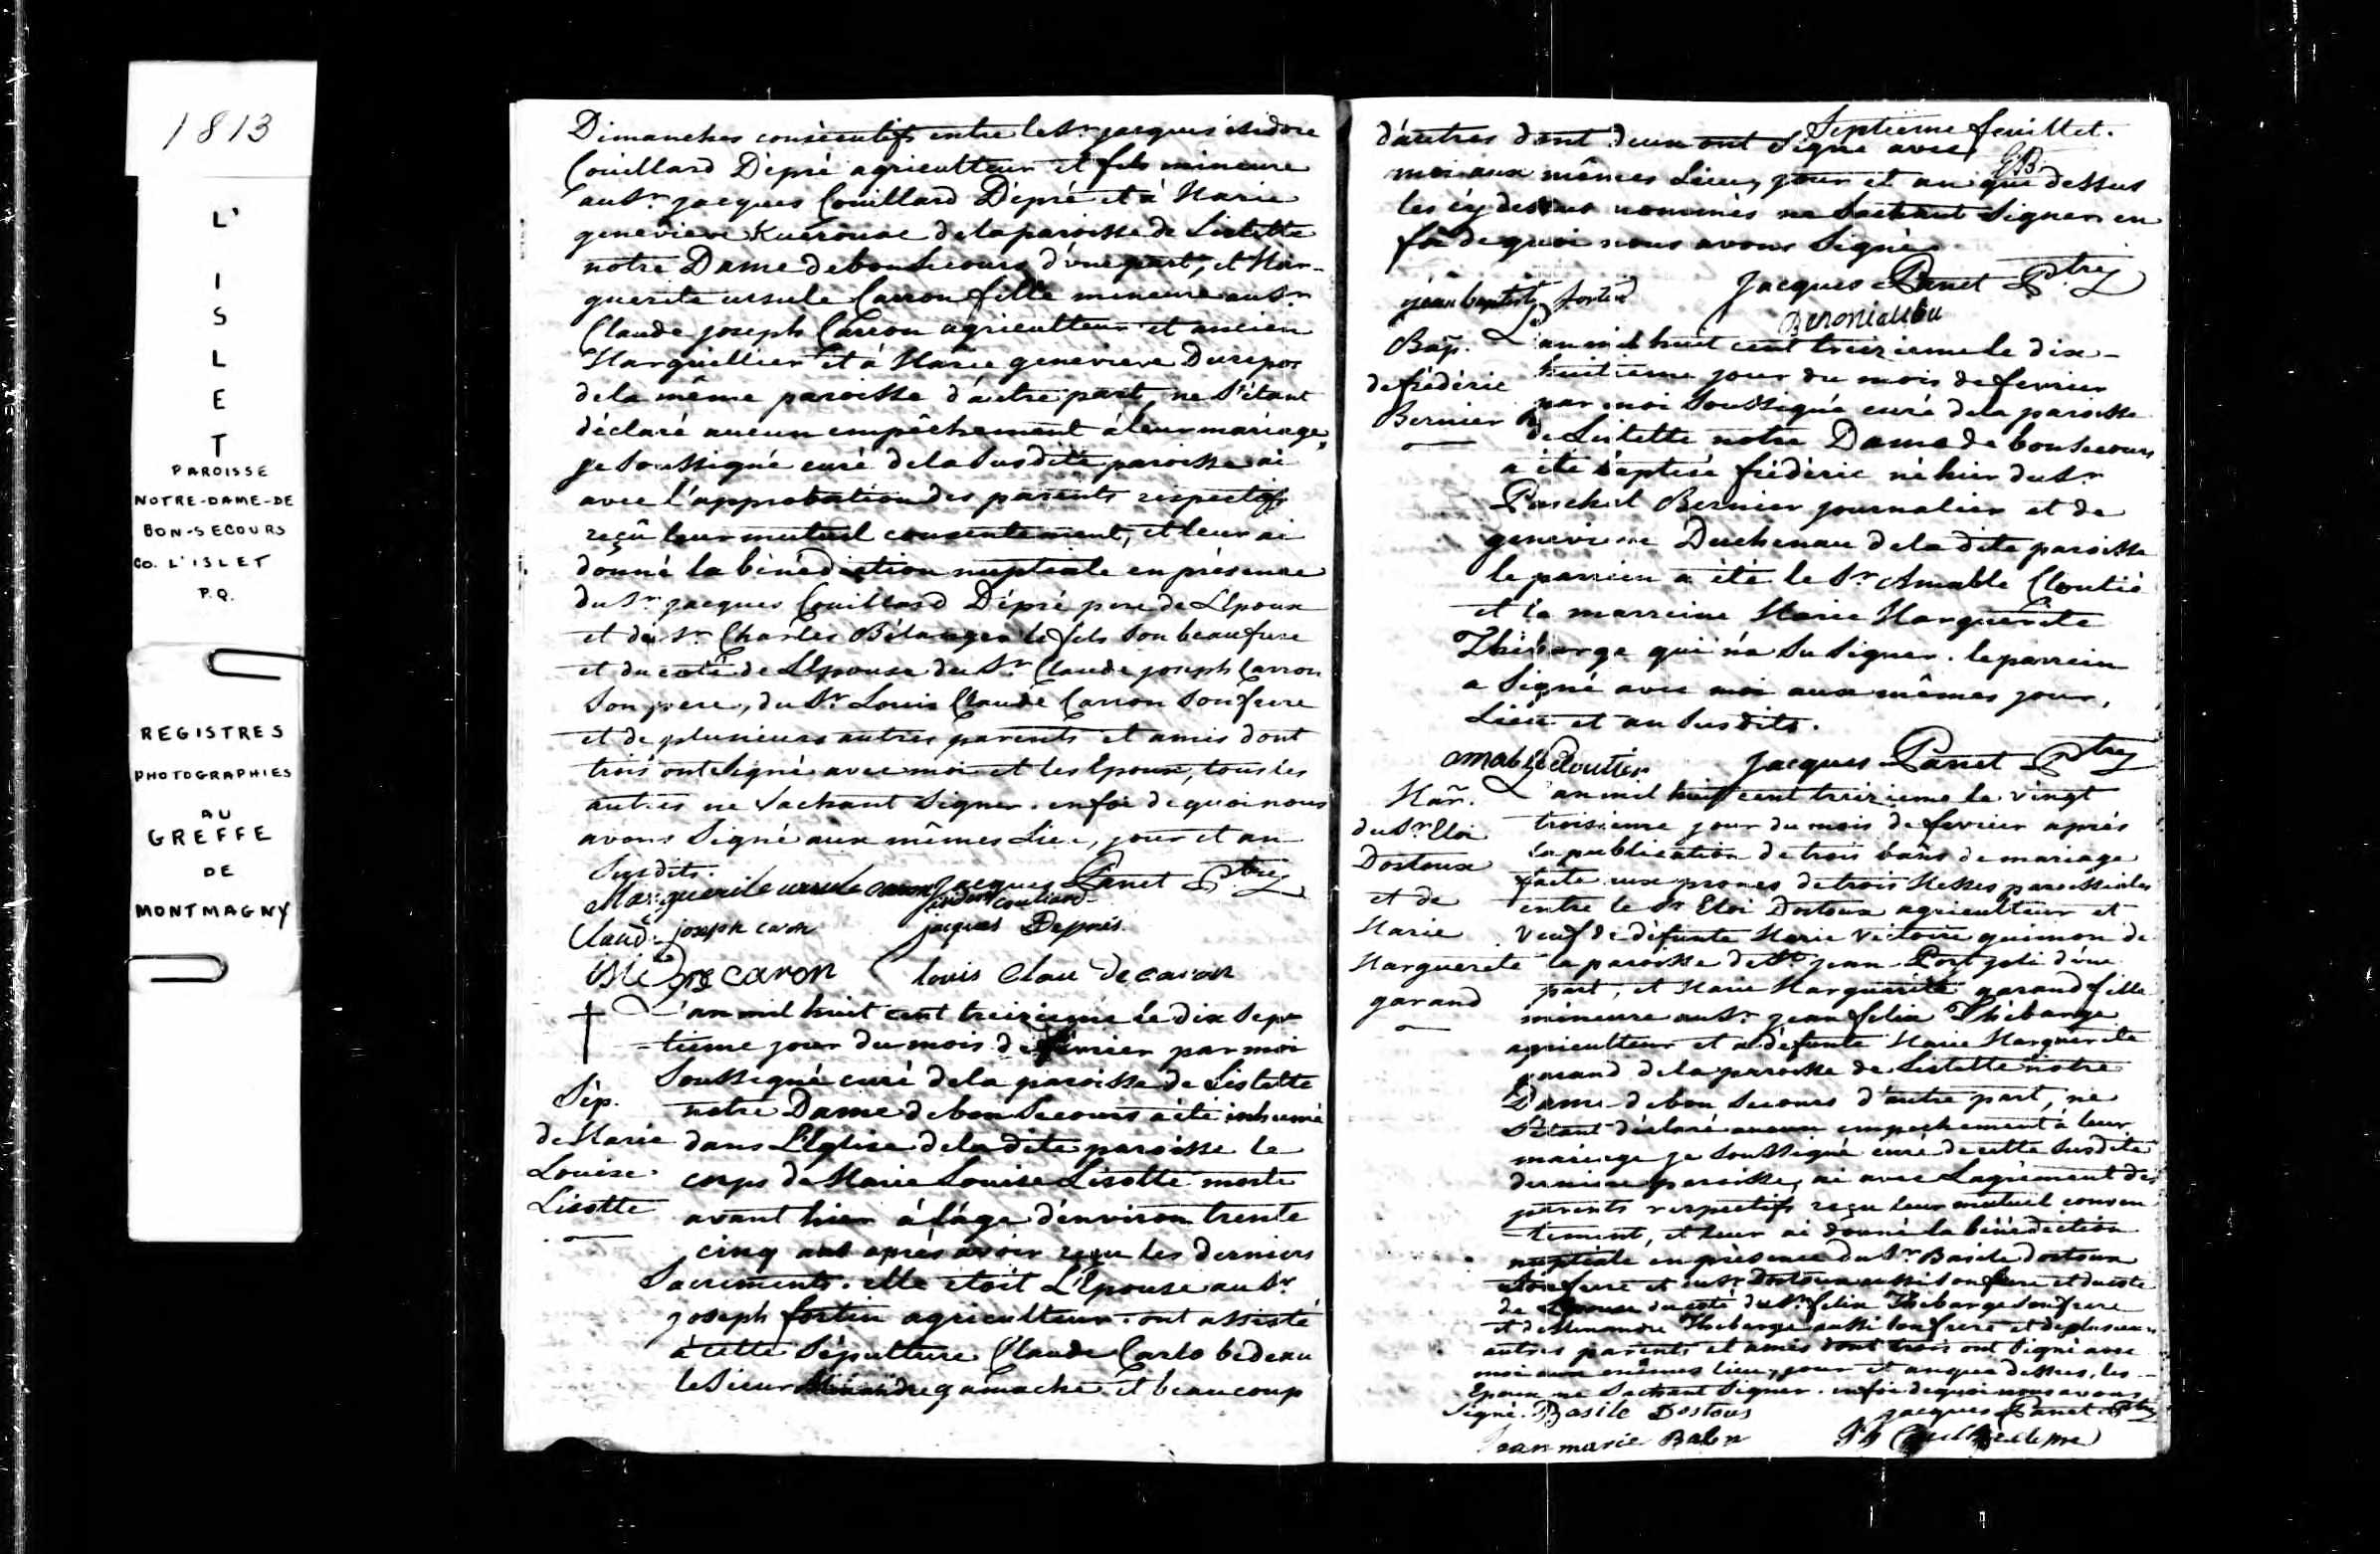 1813
L'
I
S
L
E
T
PAROISSE
NOTRE-DAME-DE
BON-SECOURS
CO. L'ISLET
P.Q.
REGISTRES
PHOTOGRAPHIES
AU
GREFFE
DE
MONTMAGNY
Dimanches consécutifs entre le Sr jacques isidore
Couillard Dépré agriculteur et fils mineure
au Sr jacques Couillard Dépré et à Marie
genevieve Kuerouac de la paroisse de Listette
notre Dame de bon Secours d'une part, et Mar-
guerite ursule Carron fille mineure au Sr
Claude joseph Carron agriculteur et ancien
Marguillier et à Marie genevieve Durepos
de la même paroisse d'autre part, ne S'étant
déclaré aucun empêchement à leur mariage,
je Soussigné curé de la Susdite paroisse ai
avec l'approbation des parents respectifs
reçû leur mutuel consentement, et leur ai
donné la bénédiction nuptiale en présence
du Sr jacques Couillard Dépré pere de L'Epoux
et du Sr Charles Bélanger le fils Son beaufrere
et du coté de L'Epouse du Sr Claude joseph Carron
Son pere, du Sr Louis Claude Carron Son frere
et de plusieurs autres parents et amis dont
trois ont Signé avec moi et les Epoux, tous les
autres ne Sachant Signer. en foi de quoi nous
avons Signé aux mêmes Lieu, jour et an
Susdits.
Marguerite ursule caron jacques Panet Ptre
isidore couliard
Claud joseph caron jacques Depres
caron louis clau de caron
† L'an mil huit cent treizieme le dix Sep-
-tieme jour du mois de fevrier par moi
Soussigné curé de la paroisse de Listette
Sép. notre Dame de bon Secours a été inhumé
de Marie dans L'Eglise de la dite paroisse le
Louise corps de Marie Louise Lisotte morte
Lisotte avant hier à l'âge d'environ trente
cinq ans après avoir reçu les derniers
Sacrements. elle etoit L'Epouse au Sr
joseph fortin agriculteur. ont assisté
à cette Sépulture Claude Carlo bedeau
le Sieur gamache et beaucoup
Septieme feuillet.
GB
d'autres dont deux ont Signé avec
moi aux mêmes Lieu, jour et an que dessus
les cy dessus nommés ne Sachant Signer en
foi de quoi nous avons Signé.
jean baptiste fortin jacques Panet Ptre
Bap. L'an mil huit cent treizieme le dix-
de fréderic huitieme jour du mois de fevrier
Bernier par moi Soussigné curé de la paroisse
de Listette notre Dame de bon Secours
a été baptisé fréderic né hier du Sr
Paschal Bernier journalier et de
genevieve Duchenau de la dite paroisse
le parrein a été le Sr Amable Cloutié
et la marreine Marie Marguerite
Thibarge qui n'a Su Signer. le parrein
a Signé avec moi aux mêmes jour,
Lieu et an Susdits.
amable cloutier jacques Panet Ptre
Mar. L'an mil huit cent treizieme le vingt
du Sr Eloi troisieme jour du mois de fevrier après
Dostoux la publication de trois bans de mariage
et de faite aux prones de trois Messes paroissiales
Marie entre le Sr Eloi Dostoux agriculteur et
Marguerete veuf de défunte Marie Victoire guimon de
garand la paroisse de St jean Port joli d'une
part, et Marie Marguerite garand fille
mineure au Sr jean felix Thibarge
agriculteur et à défunte Marie Marguerite
garand de la paroisse de Listette notre
Dame de bon Secours d'autre part, ne
S'étant déclaré aucun empechement à leur
mariage je Soussigné curé de cette Susdite
derniere paroisse, ai avec L'agrement des
parents respectifs reçu leur mutuel consen
-tement, et leur ai donné la bénédiction
nuptiale en présence du Sr Basile dostoux
Son frere et du Sr Dostoux aussi Son frere et du coté
de L'Epouse du coté du Sr felix Thibarge Son frere
et de Thibarge aussi Son frere et de plusieurs
autres parents et amis dont trois ont Signé avec
moi aux mêmes lieu, jour et an que dessus, les
Epoux ne Sachant Signer. en foi de quoi nous avons
Signé. Basile Dostous jacques Panet Ptre
Jean marie